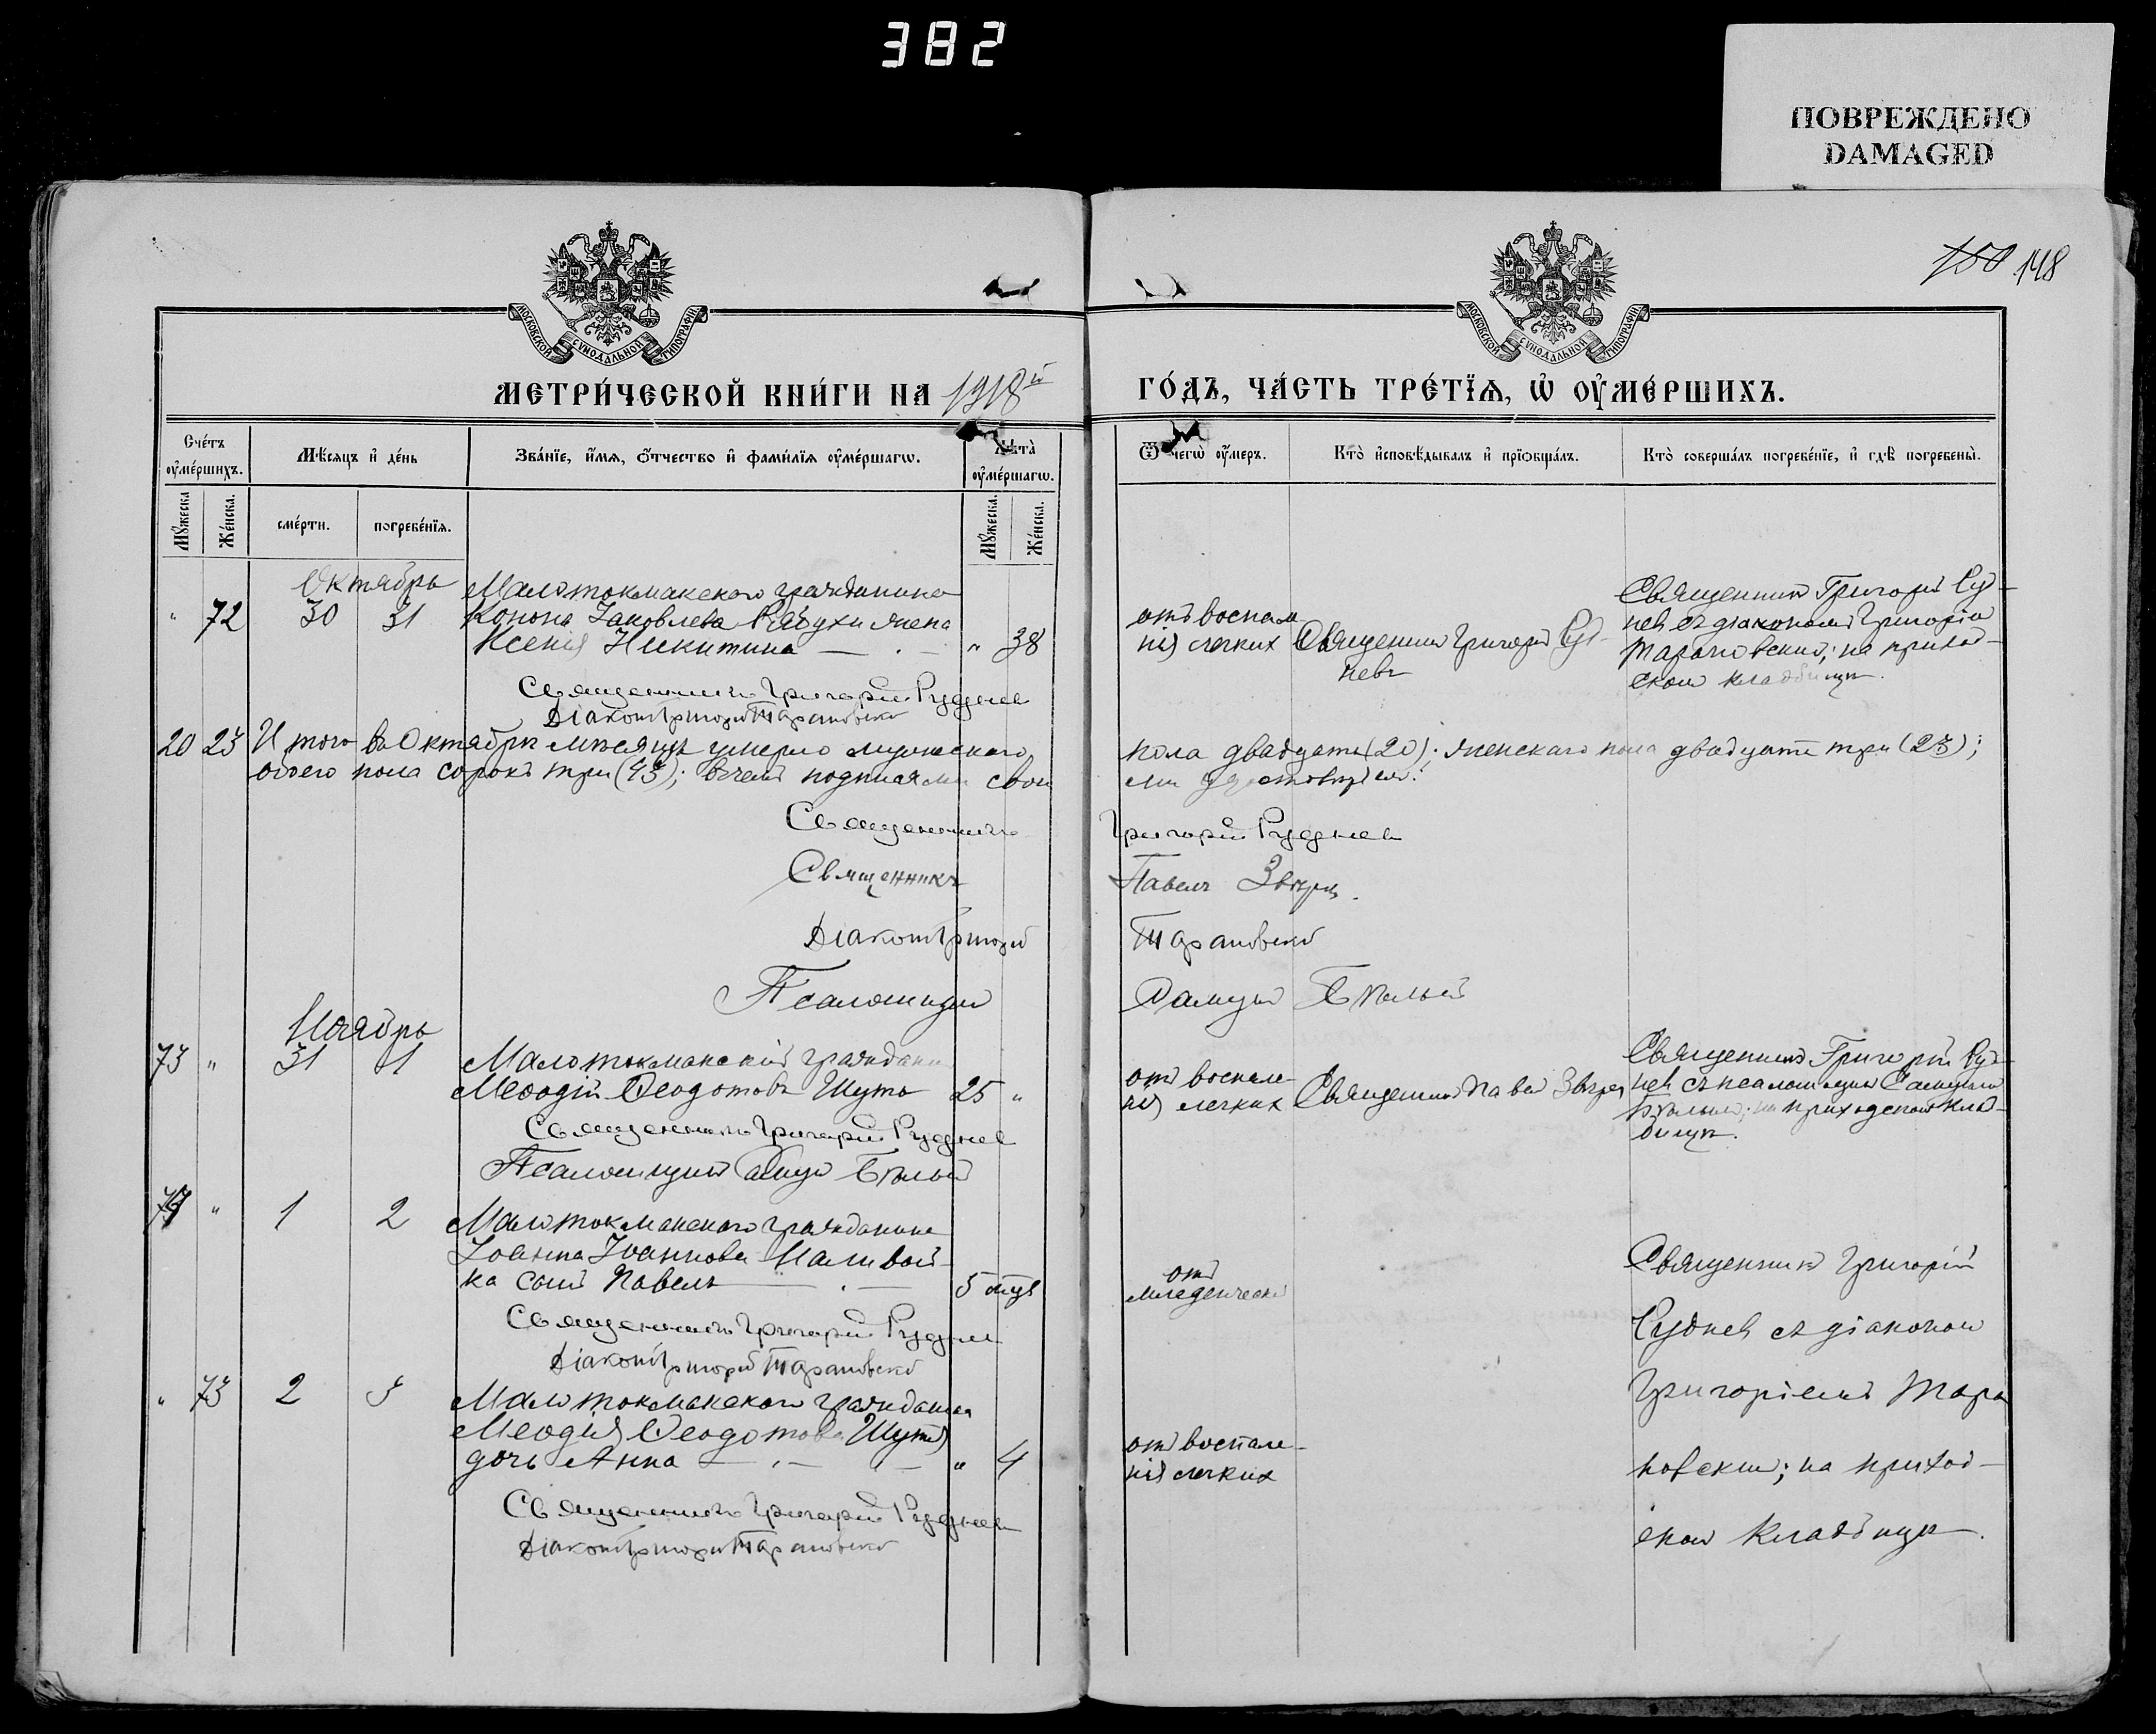 382
ПОВРЕЖДЕНО
DAMAGED
150 148
МОСКОВСКОЙ СѴНОДАЛЬНОЙ ТИПОГРАФІИ
МОСКОВСКОЙ СѴНОДАЛЬНОЙ ТИПОГРАФІИ
МЕТРИ́ЧЕСКОЙ КНИ́ГИ НА 1918й
ГО́ДЪ, ЧА́СТЬ ТРЕ́ТЇѦ, Ѡ҆ ОУ҆МЕ́РШИХЪ.
Сче́тъ оу҆ме́ршихъ.
Мѣ́сѧцъ и҆ де́нь
Зва́нїе, и҆́мѧ, ѻ҆́тчество и҆ фами́лїѧ оу҆ме́ршагѡ.
Лѣ̑та оу҆ме́ршагѡ.
Ѿ чегѡ̀ оу҆́меръ.
Кто̀ и҆сповѣ́дывалъ и҆ прїѡбща́лъ.
Кто̀ соверша́лъ погребе́нїе, и҆ гдѣ̀ погребены̀.
Мꙋ́жеска
Же́нска.
сме́рти.
погребе́нїѧ.
Мꙋ́жеска.
Же́нска.
Октябрь
" 72 30 31
Малотокмакскаго гражданина
Конона Іаковлева Рябухи жена
Ксенія Никитина — . — " 38
отъ воспале
нія легкихъ
Священникъ Григорій Руд-
невъ
Священникъ Григорій Руд-
невъ съ діакономъ Григоріем
Тарановскимъ; на приход-
скомъ кладбищѣ.
Священникъ Григорій Рудневъ
Діаконъ Григорій Тарановскій
20 23 Итого въ Октябрѣ мѣсяцѣ умерло мужескаго
пола двадцать (20); женскаго пола двадцать три (23);
обоего пола сорокъ три (43); въ чемъ подписями свои
ми удостовѣряемъ:
Священникъ Григорій Рудневъ
Священникъ Павелъ Звѣрев.
Діаконъ Григорій Тарановскій
Псаломщикъ Самуил Бѣлый
Ноябрь
73 " 31 1
Малотокмакскій гражданин
Меѳодій Ѳеодотовъ Шуть 25 "
отъ воспале-
нія легкихъ
Священникъ Павел Звѣрев
Священникъ Григорій Руд-
невъ съ псаломщикомъ Самуилом
Бѣлымъ; на приходскомъ клад-
бищѣ.
Священникъ Григорій Рудневъ
Псаломщикъ Самуил Бѣлый
74 " 1 2
Малотокмакскаго гражданина
Іоанна Іоаннова Наливай-
ка сынъ Павелъ — . — 5 мцъ
отъ
младенческой
Священникъ Григорій
Рудневъ съ діакономъ
Григоріемъ Тара
новскимъ; на приход-
скомъ кладбищѣ.
Священникъ Григорій Рудневъ
Діаконъ Григорій Тарановскій
" 73 2 3
Малотокмакскаго гражданина
Меѳодія Ѳеодотова Шутя
дочь Анна — . — — " 4
отъ воспале-
нія легкихъ
Священникъ Григорій Рудневъ
Діаконъ Григорій Тарановскій